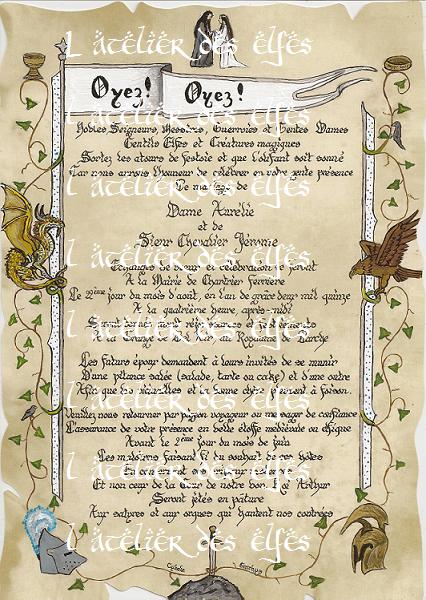 L'atelier des elfes
Oyez! Oyez!
Nobles Seigneurs, Messires, Guerriers et Gentes Dames
Gentils Elfes et Créatures magiques
Sortez les atours de festoie et que l'olifant soit sonné
Car nous aurons l'honneur de célébrer en votre gente présence
Le mariage de
Dame Aurélie
et de
Sieur Chevalier Jérémie
Echanges de vœux et célébration se feront
A la Mairie de Chartrier Ferrière
Le 22ème jour du mois d'août, en l'an de grâce deux mil quinze
A la quatrième heure, après-midi
Les futurs époux demandent à leurs invités de se munir
D'une pitance salée (salade, tarte ou cake) et d'une outre
Afin que et chère soient à foison.
Veuillez nous retourner par pigeon voyageur ou messager de confiance
L'assurance de votre présence en belle étoffe médiévale ou elfique
Avant le 2ème jour du mois de juin
Les malotrus faisant fi du souhait de ces hôtes
Et non ceux de la Cour de notre bon Roi Arthur
Seront jetés en pâture
Aux satyres et aux orques qui hantent nos contrées